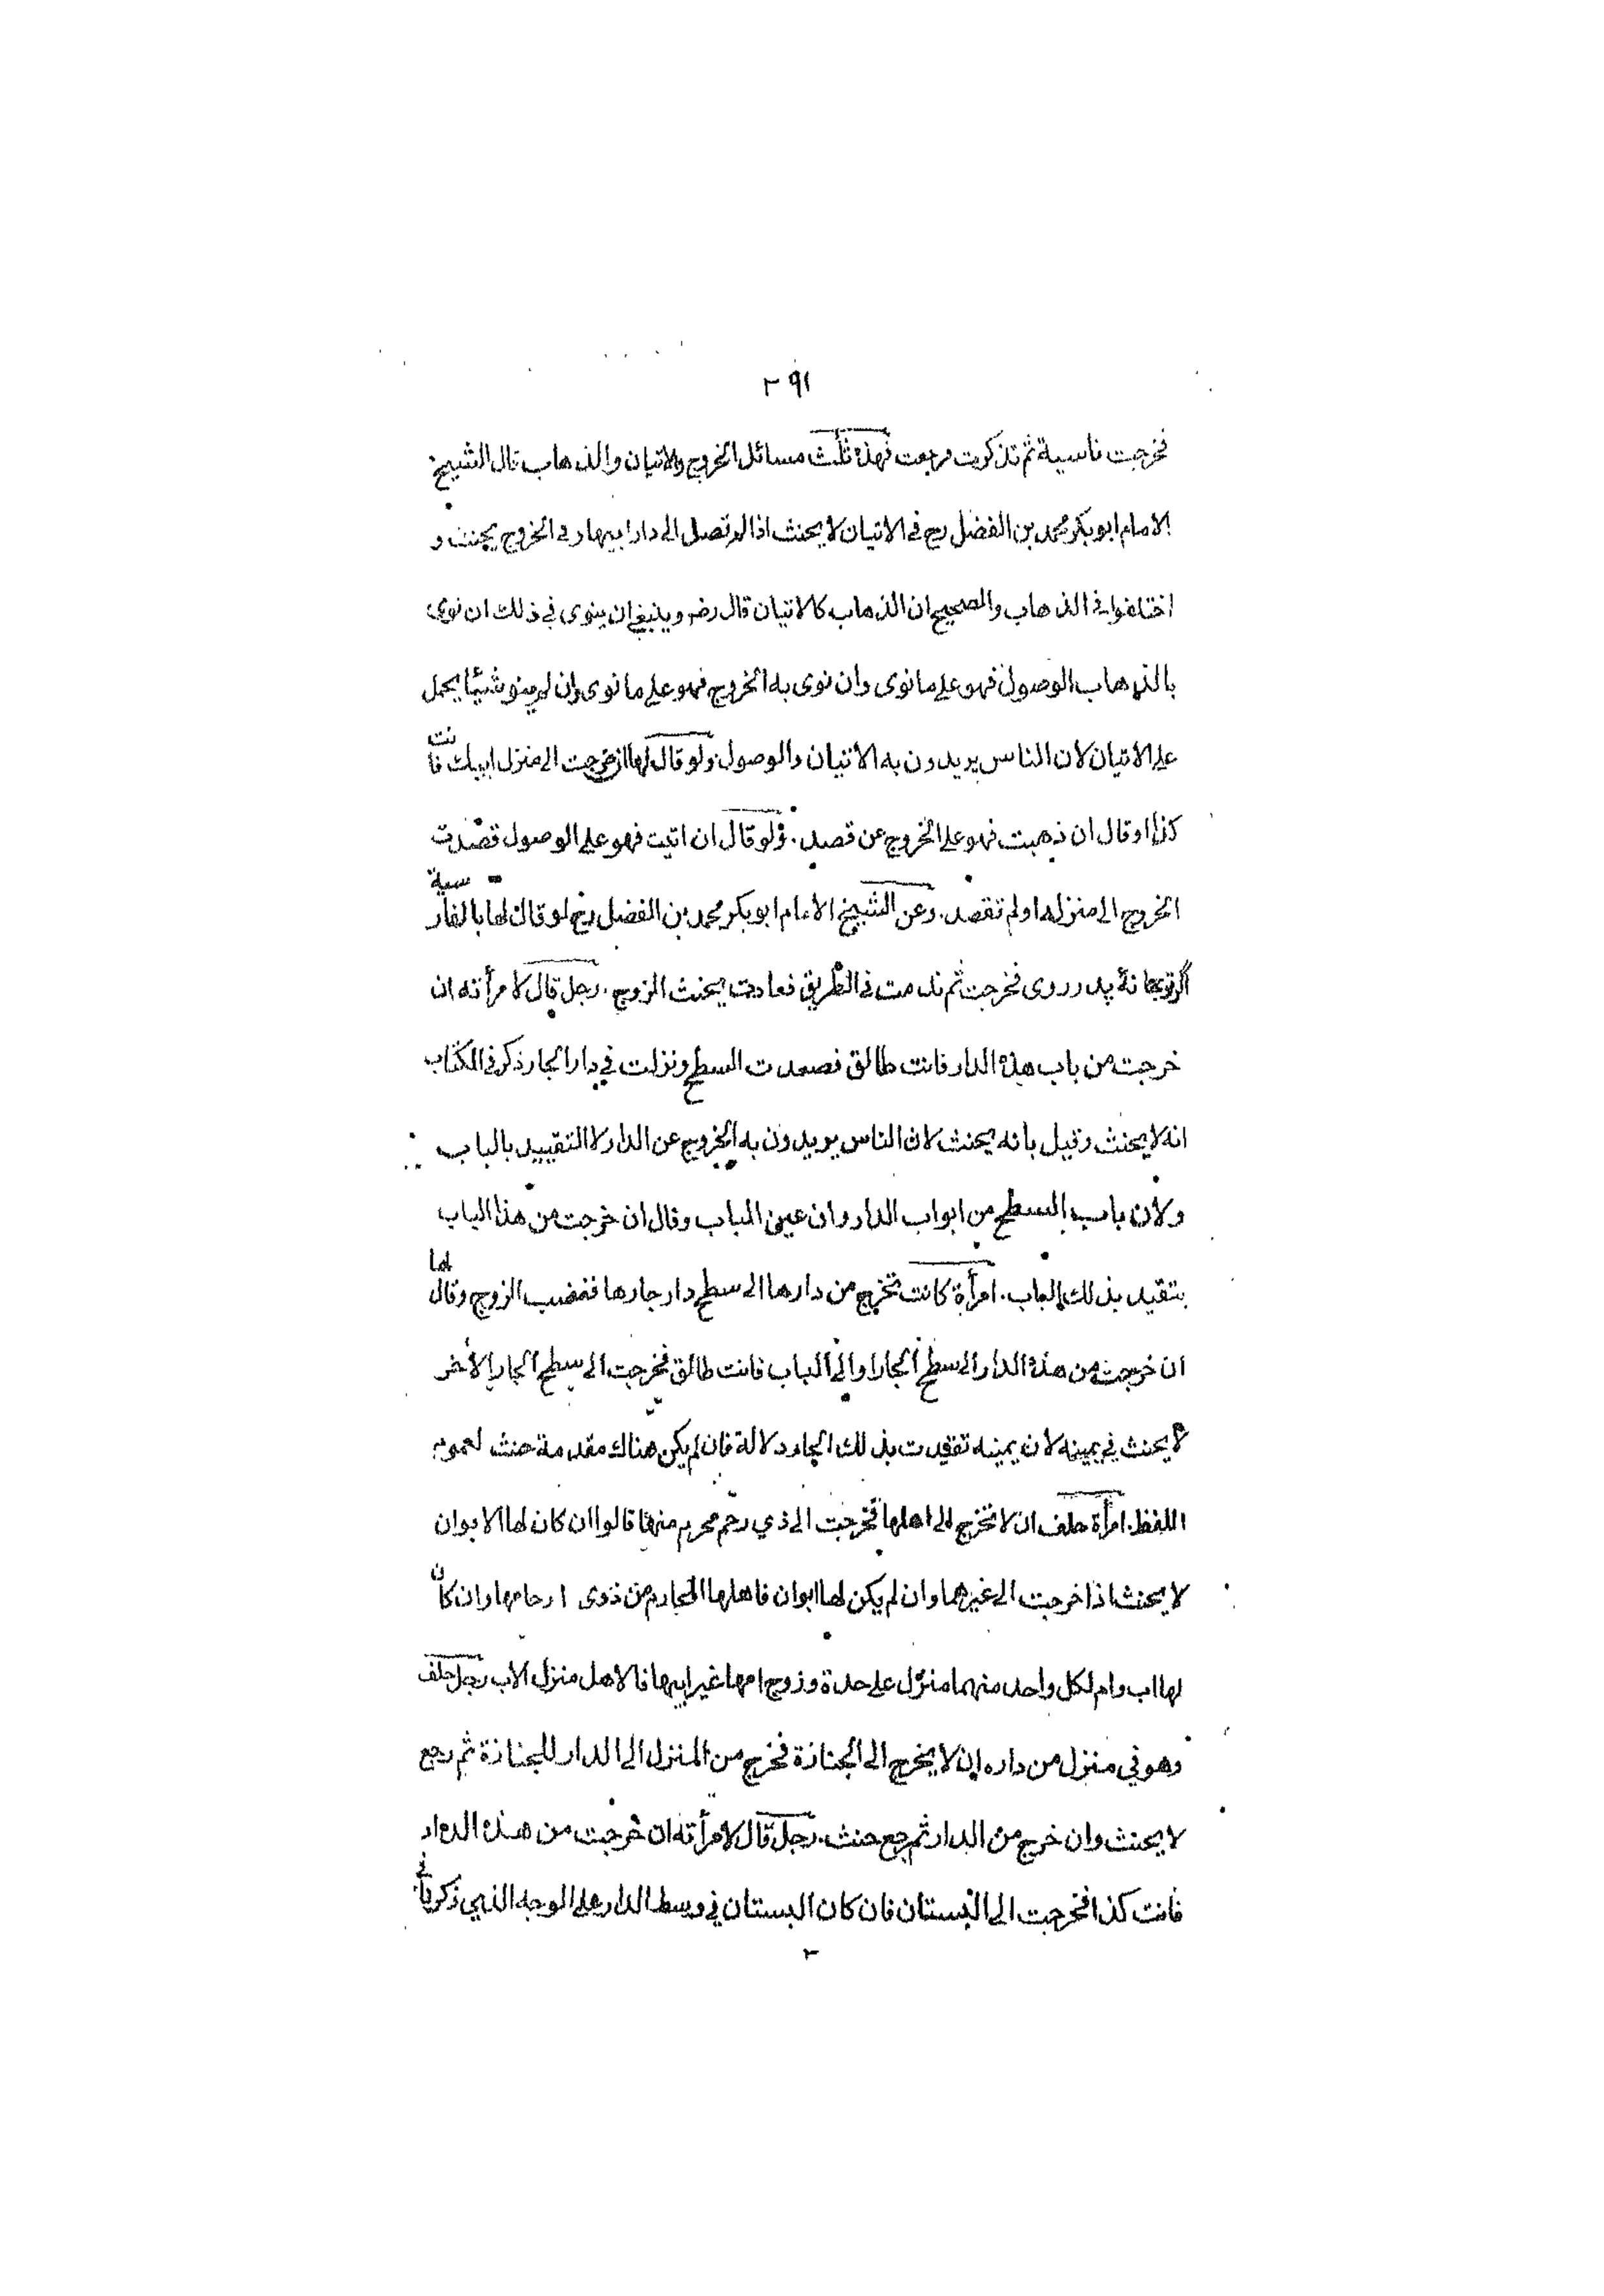 ٢٩١
فخرجت ناسية ثم تذكرت فرجعت فهذه ثلث مسائل الخروج والاتيان والذهاب قال الشيخ
الامام ابو بكر محمد بن الفضل رح في الاتيان لا يحنث اذا لم تصل الى دار ابيها وفي الخروج يحنث و
اختلفوا في الذهاب والصحيح ان الذهاب كالاتيان قال رضه وينبغي ان ينوى في ذلك ان نوى
بالذهاب الوصول فهو على ما نوى وان نوى به الخروج فهو على ما نوى وان لم ينو شيئا يحمل
على الاتيان لان الناس يريدون به الاتيان والوصول ولو قال لها ان خرجت الى منزل ابيك فانت
كذا او قال ان ذهبت فهو على الخروج عن قصد . ولو قال ان اتيت فهو على الوصول قصدت
الخروج الى منزله او لم تقصد . وعن الشيخ الامام ابو بكر محمد بن الفضل رح لو قال لها بالفارسية
اگر تو بخانهٔ پدر روى فخرجت ثم ندمت في الطريق فعادت يحنث الزوج . رجل قال لامرأته ان
خرجت من باب هذه الدار فانت طالق فصعدت السطح ونزلت في دار الجار ذكر في الكتاب
انه لا يحنث وقيل بانه يحنث لان الناس يريدون به الخروج عن الدار لا التقييد بالباب
ولان باب السطح من ابواب الدار وان عين الباب وقال ان خرجت من هذا الباب
يتقيد بذلك الباب . امرأة كانت تخرج من دارها الى سطح دار جارها فغضب الزوج وقال لها
ان خرجت من هذه الدار الى سطح الجار او الى الباب فانت طالق فخرجت الى سطح الجار الآخر
لا يحنث في يمينه لان يمينه تقيدت بذلك الجار دلالة فان لم يكن هناك مقدمة حنث لعموم
اللفظ . امرأة حلف ان لا تخرج الى اهلها فخرجت الى ذي رحم محرم منها قالوا ان كان لها الابوان
لا يحنث اذا خرجت الى غيرهما وان لم يكن لها ابوان فاهلها المحارم من ذوى ارحامها وان كان
لها اب وام لكل واحد منهما منزل على حدة وزوج امها غير ابيها فالاهل منزل الاب رجل حلف
وهو في منزل من داره ان لا يخرج الى الجنازة فخرج من المنزل الى الدار للجنازة ثم رجع
لا يحنث وان خرج من الدار ثم رجع حنث . رجل قال لامرأته ان خرجت من هذه الدار
فانت كذا فخرجت الى البستان فان كان البستان في وسط الدار على الوجه الذي ذكرنا في